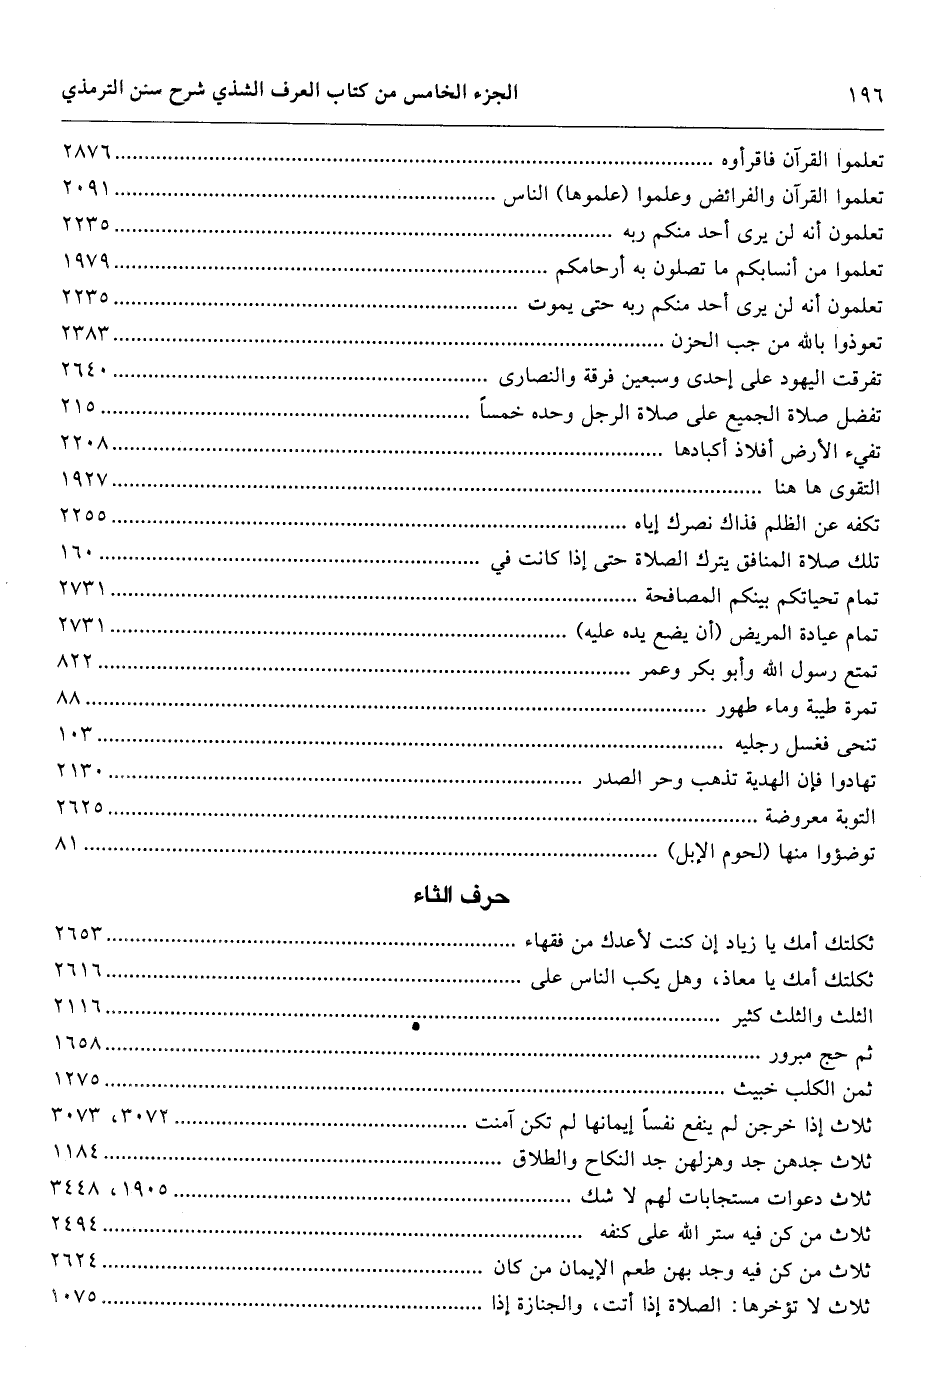 ١٩٦ الجزء الخامس من كتاب العرف الشذي شرح سنن الترمذي
تعلموا القرآن فاقرأوه ........ ٢٨٧٦
تعلموا القرآن والفرائض وعلموا (علموها) الناس ........ ٢٠٩١
تعلمون أنه لن يرى أحد منكم ربه ........ ٢٢٣٥
تعلموا من أنسابكم ما تصلون به أرحامكم ........ ١٩٧٩
تعلمون أنه لن يرى أحد منكم ربه حتى يموت ........ ٢٢٣٥
تعوذوا بالله من جب الحزن ........ ٢٣٨٣
تفرقت اليهود على إحدى وسبعين فرقة والنصارى ........ ٢٦٤٠
تفضل صلاة الجميع على صلاة الرجل وحده خمساً ........ ٢١٥
تفيء الأرض أفلاذ أكبادها ........ ٢٢٠٨
التقوى ها هنا ........ ١٩٢٧
تكفه عن الظلم فذاك نصرك إياه ........ ٢٢٥٥
تلك صلاة المنافق يترك الصلاة حتى إذا كانت في ........ ١٦٠
تمام تحياتكم بينكم المصافحة ........ ٢٧٣١
تمام عيادة المريض (أن يضع يده عليه) ........ ٢٧٣١
تمتع رسول الله وأبو بكر وعمر ........ ٨٢٢
تمرة طيبة وماء طهور ........ ٨٨
تنحى فغسل رجليه ........ ١٠٣
تهادوا فإن الهدية تذهب وحر الصدر ........ ٢١٣٠
التوبة معروضة ........ ٢٦٢٥
توضؤوا منها (لحوم الإبل) ........ ٨١
حرف الثاء
ثكلتك أمك يا زياد إن كنت لأعدك من فقهاء ........ ٢٦٥٣
ثكلتك أمك يا معاذ، وهل يكب الناس على ........ ٢٦١٦
الثلث والثلث كثير ........ ٢١١٦
ثم حج مبرور ........ ١٦٥٨
ثمن الكلب خبيث ........ ١٢٧٥
ثلاث إذا خرجن لم ينفع نفساً إيمانها لم تكن آمنت ........ ٣٠٧٢، ٣٠٧٣
ثلاث جدهن جد وهزلهن جد النكاح والطلاق ........ ١١٨٤
ثلاث دعوات مستجابات لهم لا شك ........ ١٩٠٥، ٣٤٤٨
ثلاث من كن فيه ستر الله على كنفه ........ ٢٤٩٤
ثلاث من كن فيه وجد بهن طعم الإيمان من كان ........ ٢٦٢٤
ثلاث لا تؤخرها: الصلاة إذا أتت، والجنازة إذا ........ ١٠٧٥